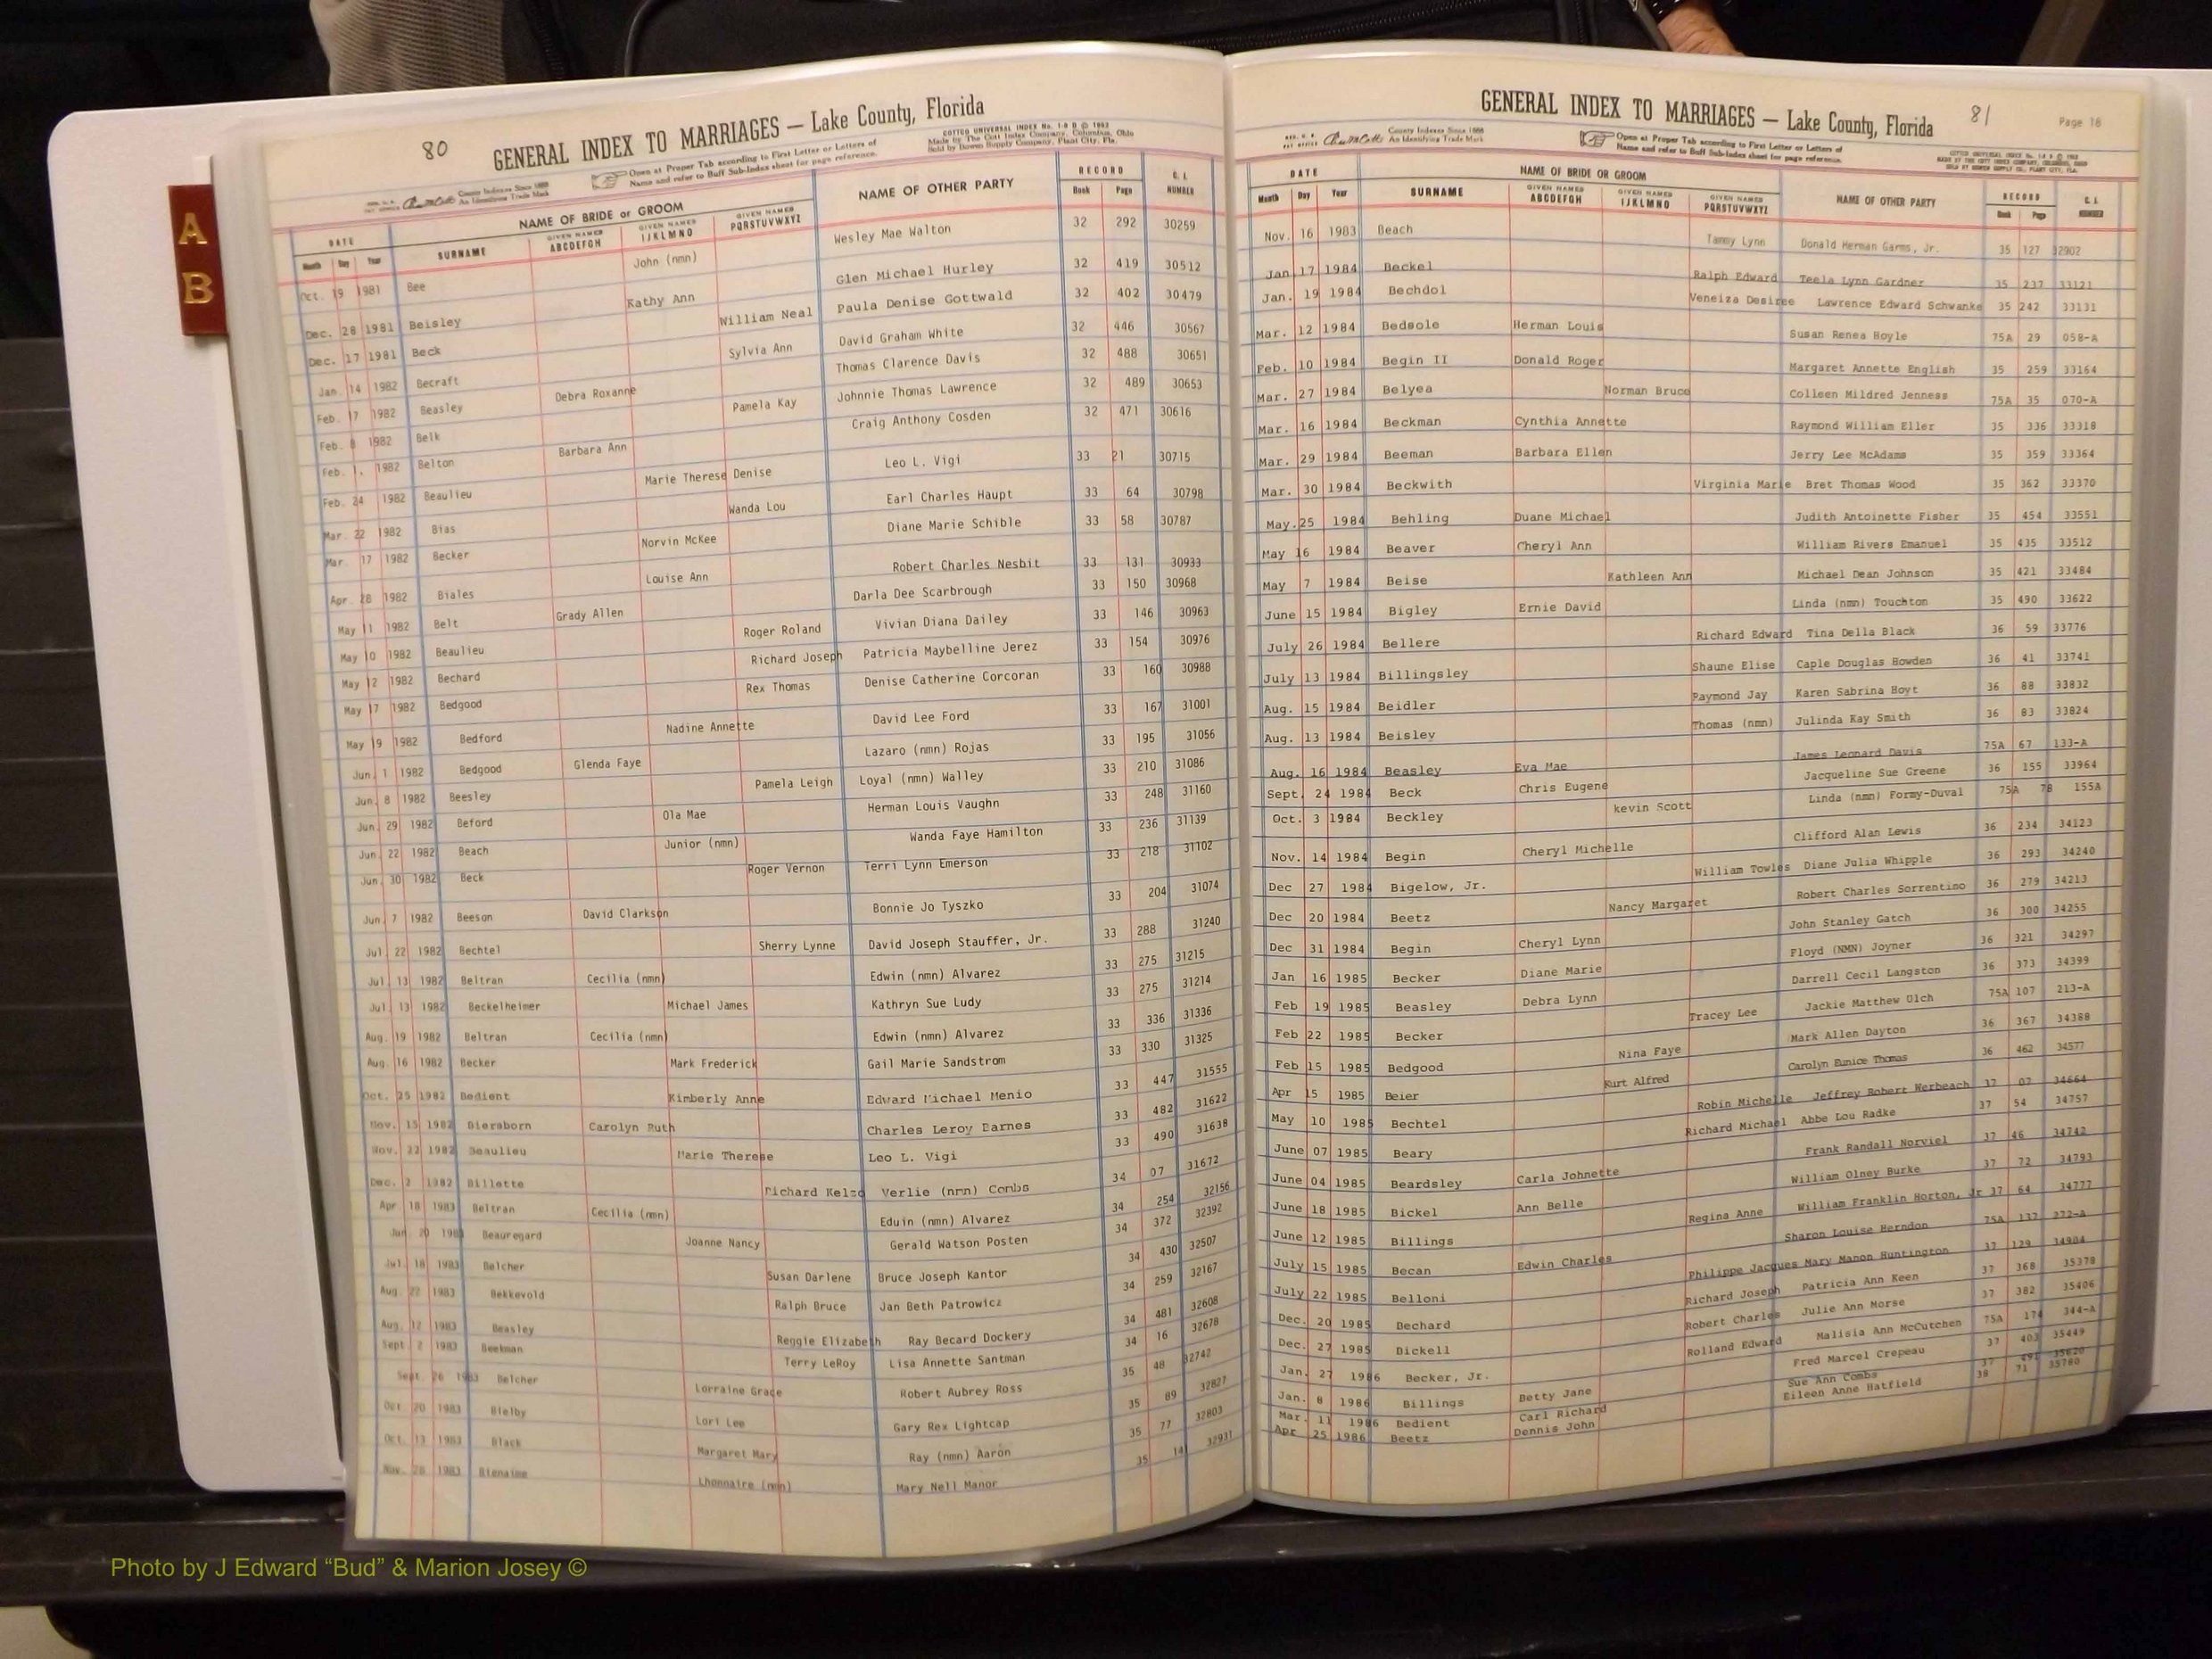 80
GENERAL INDEX TO MARRIAGES — Lake County, Florida
County Indexes Since 1888
An Identifying Trade Mark
Open at Proper Tab according to First Letter or Letters of
Name and refer to Buff Sub-Index sheet for page reference.
COTTCO UNIVERSAL INDEX No. 1-8 D © 1963
Made by The Cott Index Company, Columbus, Ohio
Sold by Bowen Supply Company, Plant City, Fla.
DATE NAME OF BRIDE or GROOM NAME OF OTHER PARTY RECORD C. L. NUMBER
Month Day Year SURNAME GIVEN NAMES ABCDEFGH GIVEN NAMES IJKLMNO GIVEN NAMES PQRSTUVWXYZ Book Page
Oct. 19 1981 Bee John (nmn) Wesley Mae Walton 32 292 30259
Dec. 28 1981 Beisley Kathy Ann Glen Michael Hurley 32 419 30512
Dec. 17 1981 Beck William Neal Paula Denise Gottwald 32 402 30479
Jan. 14 1982 Becraft Sylvia Ann David Graham White 32 446 30567
Feb. 17 1982 Beasley Debra Roxanne Thomas Clarence Davis 32 488 30651
Feb. 8 1982 Belk Pamela Kay Johnnie Thomas Lawrence 32 489 30653
Feb. 1, 1982 Belton Barbara Ann Craig Anthony Cosden 32 471 30616
Feb. 24 1982 Beaulieu Marie Therese Denise Leo L. Vigi 33 21 30715
Mar. 22 1982 Bias Wanda Lou Earl Charles Haupt 33 64 30798
Mar. 17 1982 Becker Norvin McKee Diane Marie Schible 33 58 30787
Apr. 28 1982 Biales Louise Ann Robert Charles Nesbit 33 131 30933
May 11 1982 Belt Grady Allen Darla Dee Scarbrough 33 150 30968
May 10 1982 Beaulieu Roger Roland Vivian Diana Dailey 33 146 30963
May 12 1982 Bechard Richard Joseph Patricia Maybelline Jerez 33 154 30976
May 17 1982 Bedgood Rex Thomas Denise Catherine Corcoran 33 160 30988
May 19 1982 Bedford Nadine Annette David Lee Ford 33 167 31001
Jun. 1 1982 Bedgood Glenda Faye Lazaro (nmn) Rojas 33 195 31056
Jun. 8 1982 Beesley Pamela Leigh Loyal (nmn) Walley 33 210 31086
Jun. 29 1982 Beford Ola Mae Herman Louis Vaughn 33 248 31160
Jun. 22 1982 Beach Junior (nmn) Wanda Faye Hamilton 33 236 31139
Jun. 30 1982 Beck Roger Vernon Terri Lynn Emerson 33 218 31102
Jun. 7 1982 Beeson David Clarkson Bonnie Jo Tyszko 33 204 31074
Jul. 22 1982 Bechtel Sherry Lynne David Joseph Stauffer, Jr. 33 288 31240
Jul. 13 1982 Beltran Cecilia (nmn) Edwin (nmn) Alvarez 33 275 31215
Jul. 13 1982 Beckelheimer Michael James Kathryn Sue Ludy 33 275 31214
Aug. 19 1982 Beltran Cecilia (nmn) Edwin (nmn) Alvarez 33 336 31336
Aug. 16 1982 Becker Mark Frederick Gail Marie Sandstrom 33 330 31325
Oct. 25 1982 Bedient Kimberly Anne Edward Michael Menio 33 447 31555
Nov. 15 1982 Biersborn Carolyn Ruth Charles Leroy Barnes 33 482 31622
Nov. 22 1982 Beaulieu Marie Therese Leo L. Vigi 33 490 31638
Dec. 2 1982 Billette Richard Kelso Verlie (nmn) Combs 34 07 31672
Apr. 18 1983 Beltran Cecilia (nmn) Eduin (nmn) Alvarez 34 254 32156
Jun. 20 1983 Beauregard Joanne Nancy Gerald Watson Posten 34 372 32392
Jul. 18 1983 Belcher Susan Darlene Bruce Joseph Kantor 34 430 32507
Aug. 22 1983 Bekkevold Ralph Bruce Jan Beth Patrowicz 34 259 32167
Aug. 12 1983 Beasley Reggie Elizabeth Ray Becard Dockery 34 481 32608
Sept. 2 1983 Beekman Terry LeRoy Lisa Annette Santman 34 16 32678
Sept. 26 1983 Belcher Lorraine Grace Robert Aubrey Ross 35 48 32742
Oct. 20 1983 Bielby Lori Lee Gary Rex Lightcap 35 89 32827
Oct. 13 1983 Black Margaret Mary Ray (nmn) Aaron 35 77 32803
Nov. 28 1983 Bienaime Lhonnaire (nmn) Mary Nell Manor 35 141 32931
81
Page 16
GENERAL INDEX TO MARRIAGES — Lake County, Florida
County Indexes Since 1888
An Identifying Trade Mark
Open at Proper Tab according to First Letter or Letters of
Name and refer to Buff Sub-Index sheet for page reference.
DATE NAME OF BRIDE OR GROOM NAME OF OTHER PARTY RECORD C. L. NUMBER
Month Day Year SURNAME GIVEN NAMES ABCDEFGH GIVEN NAMES IJKLMNO GIVEN NAMES PQRSTUVWXYZ Book Page
Nov. 16 1983 Beach Tammy Lynn Donald Herman Garms, Jr. 35 127 32902
Jan 17 1984 Beckel Ralph Edward Teela Lynn Gardner 35 237 33121
Jan. 19 1984 Bechdol Veneiza Desiree Lawrence Edward Schwanke 35 242 33131
Mar. 12 1984 Bedsole Herman Louis Susan Renea Hoyle 75A 29 058-A
Feb. 10 1984 Begin II Donald Roger Margaret Annette English 35 259 33164
Mar. 27 1984 Belyea Norman Bruce Colleen Mildred Jenness 75A 35 070-A
Mar. 16 1984 Beckman Cynthia Annette Raymond William Eller 35 336 33318
Mar. 29 1984 Beeman Barbara Ellen Jerry Lee McAdams 35 359 33364
Mar. 30 1984 Beckwith Virginia Marie Bret Thomas Wood 35 362 33370
May. 25 1984 Behling Duane Michael Judith Antoinette Fisher 35 454 33551
May 16 1984 Beaver Cheryl Ann William Rivers Emanuel 35 435 33512
May 7 1984 Beise Kathleen Ann Michael Dean Johnson 35 421 33484
June 15 1984 Bigley Ernie David Linda (nmn) Touchton 35 490 33622
July 26 1984 Bellere Richard Edward Tina Della Black 36 59 33776
July 13 1984 Billingsley Shaune Elise Caple Douglas Howden 36 41 33741
Aug. 15 1984 Beidler Raymond Jay Karen Sabrina Hoyt 36 88 33832
Aug. 13 1984 Beisley Thomas (nmn) Julinda Kay Smith 36 83 33824
Aug. 16 1984 Beasley Eva Mae James Leonard Davis 75A 67 133-A
Sept. 24 1984 Beck Chris Eugene Jacqueline Sue Greene 36 155 33964
Oct. 3 1984 Beckley kevin Scott Linda (nmn) Formy-Duval 75A 78 155A
Nov. 14 1984 Begin Cheryl Michelle Clifford Alan Lewis 36 234 34123
Dec 27 1984 Bigelow, Jr. William Towles Diane Julia Whipple 36 293 34240
Dec 20 1984 Beetz Nancy Margaret Robert Charles Sorrentino 36 279 34213
Dec 31 1984 Begin Cheryl Lynn John Stanley Gatch 36 300 34255
Jan 16 1985 Becker Diane Marie Floyd (NMN) Joyner 36 321 34297
Feb 19 1985 Beasley Debra Lynn Darrell Cecil Langston 36 373 34399
Feb 22 1985 Becker Tracey Lee Jackie Matthew Ulch 75A 107 213-A
Feb 15 1985 Bedgood Nina Faye Mark Allen Dayton 36 367 34388
Apr 15 1985 Beier Kurt Alfred Carolyn Eunice Thomas 36 462 34577
May 10 1985 Bechtel Robin Michelle Jeffrey Robert Werbeach 37 02 34664
June 07 1985 Beary Richard Michael Abbe Lou Radke 37 54 34757
June 04 1985 Beardsley Carla Johnette Frank Randall Norviel 37 46 34742
June 18 1985 Bickel Ann Belle William Olney Burke 37 72 34793
June 12 1985 Billings Regina Anne William Franklin Horton, Jr 37 64 34777
July 15 1985 Becan Edwin Charles Sharon Louise Herndon 75A 137 272-A
July 22 1985 Belloni Philippe Jacques Mary Manon Huntington 37 129 34904
Dec. 20 1985 Bechard Richard Joseph Patricia Ann Keen 37 368 35378
Dec. 27 1985 Bickell Robert Charles Julie Ann Morse 37 382 35406
Jan. 27 1986 Becker, Jr. Rolland Edward Malisia Ann McCutchen 75A 174 344-A
Jan. 8 1986 Billings Betty Jane Fred Marcel Crepeau 37 403 35449
Mar. 11 1986 Bedient Carl Richard Sue Ann Combs 37 491
Apr 25 1986 Beetz Dennis John Eileen Anne Hatfield 38 71 35780
A
B
Photo by J Edward “Bud” & Marion Josey ©